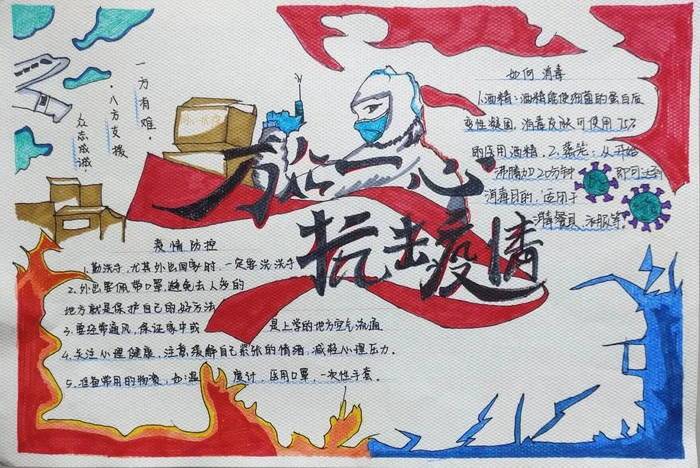 一方有难,
八方支援
众志成诚!
万众一心
抗击疫情
如何消毒
1.酒精:酒精能使细菌的蛋白质
变性凝固,消毒皮肤可使用75%
的医用酒精,2.蒸笼:从开始
沸腾加20分钟 即可达到
消毒目的,适用于
消毒餐具,衣服等。
疫情防控
1.勤洗手,尤其外出回家时,一定要洗洗手
2.外出要佩带口罩,避免去人多的
地方就是保护自己的好方法
3.要经常通风,保证家中或 是上学的地方空气流通
4.关注心理健康,注意缓解自己紧张的情绪,减轻心理压力.
5.准备常用的物资,如:温 度计,医用口罩,一次性手套.